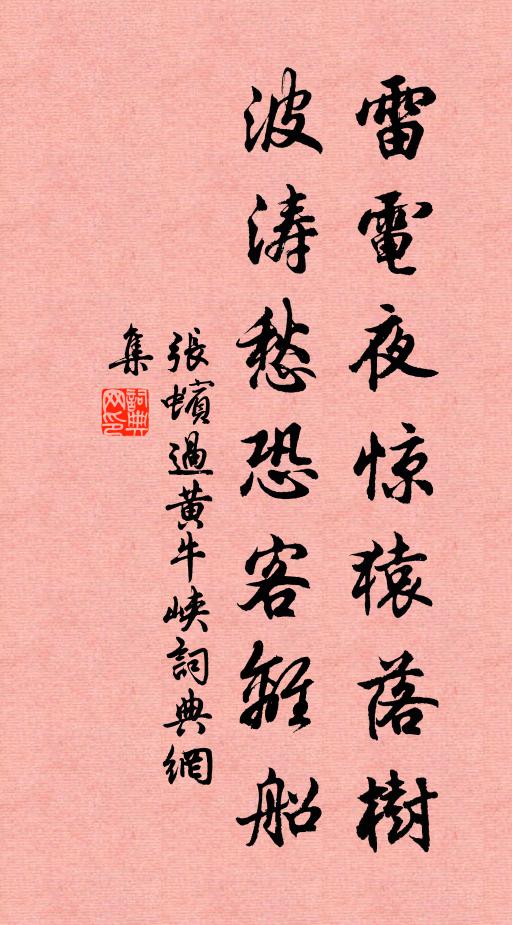 雷電夜惊猿落樹
波涛愁恐客離船
張蠙過黄牛峽詞典網
集
詞典
网印